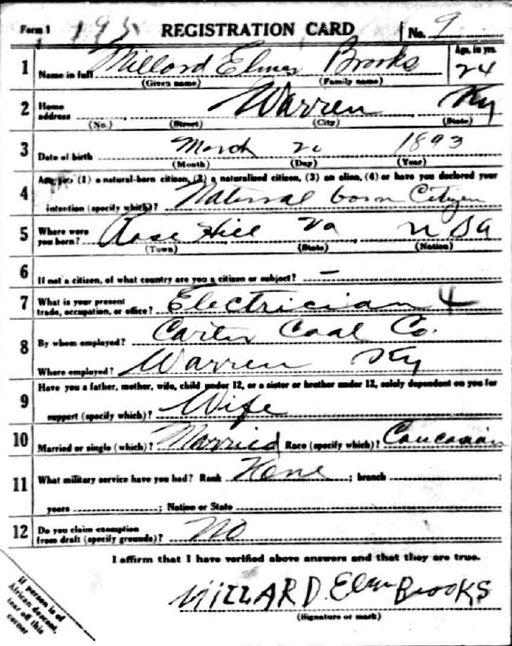 Form 1 195 REGISTRATION CARD No. 9
1 Name in full Millard Elmer Brooks Age, in yrs. 24
(Given name) (Family name)
2 Home address Warren Ky
(No.) (Street) (City) (State)
3 Date of birth March 20 1893
(Month) (Day) (Year)
4 Are you (1) a natural-born citizen, (2) a naturalized citizen, (3) an alien, (4) or have you declared your
intention (specify which)? Natural born Citizen
5 Where were you born? Rose Hill Va USA
(Town) (State) (Nation)
6 If not a citizen, of what country are you a citizen or subject? —
7 What is your present trade, occupation, or office? Electrician 4
8 By whom employed? Carter Coal Co.
Where employed? Warren Ky
9 Have you a father, mother, wife, child under 12, or a sister or brother under 12, solely dependent on you for
support (specify which)? Wife
10 Married or single (which)? Married Race (specify which)? Caucasian
11 What military service have you had? Rank None ; branch ;
years ; Nation or State
12 Do you claim exemption from draft (specify grounds)? No
I affirm that I have verified above answers and that they are true.
MILLARD. Elm BROOKS
(Signature or mark)
If person is of
African descent,
tear off this
corner